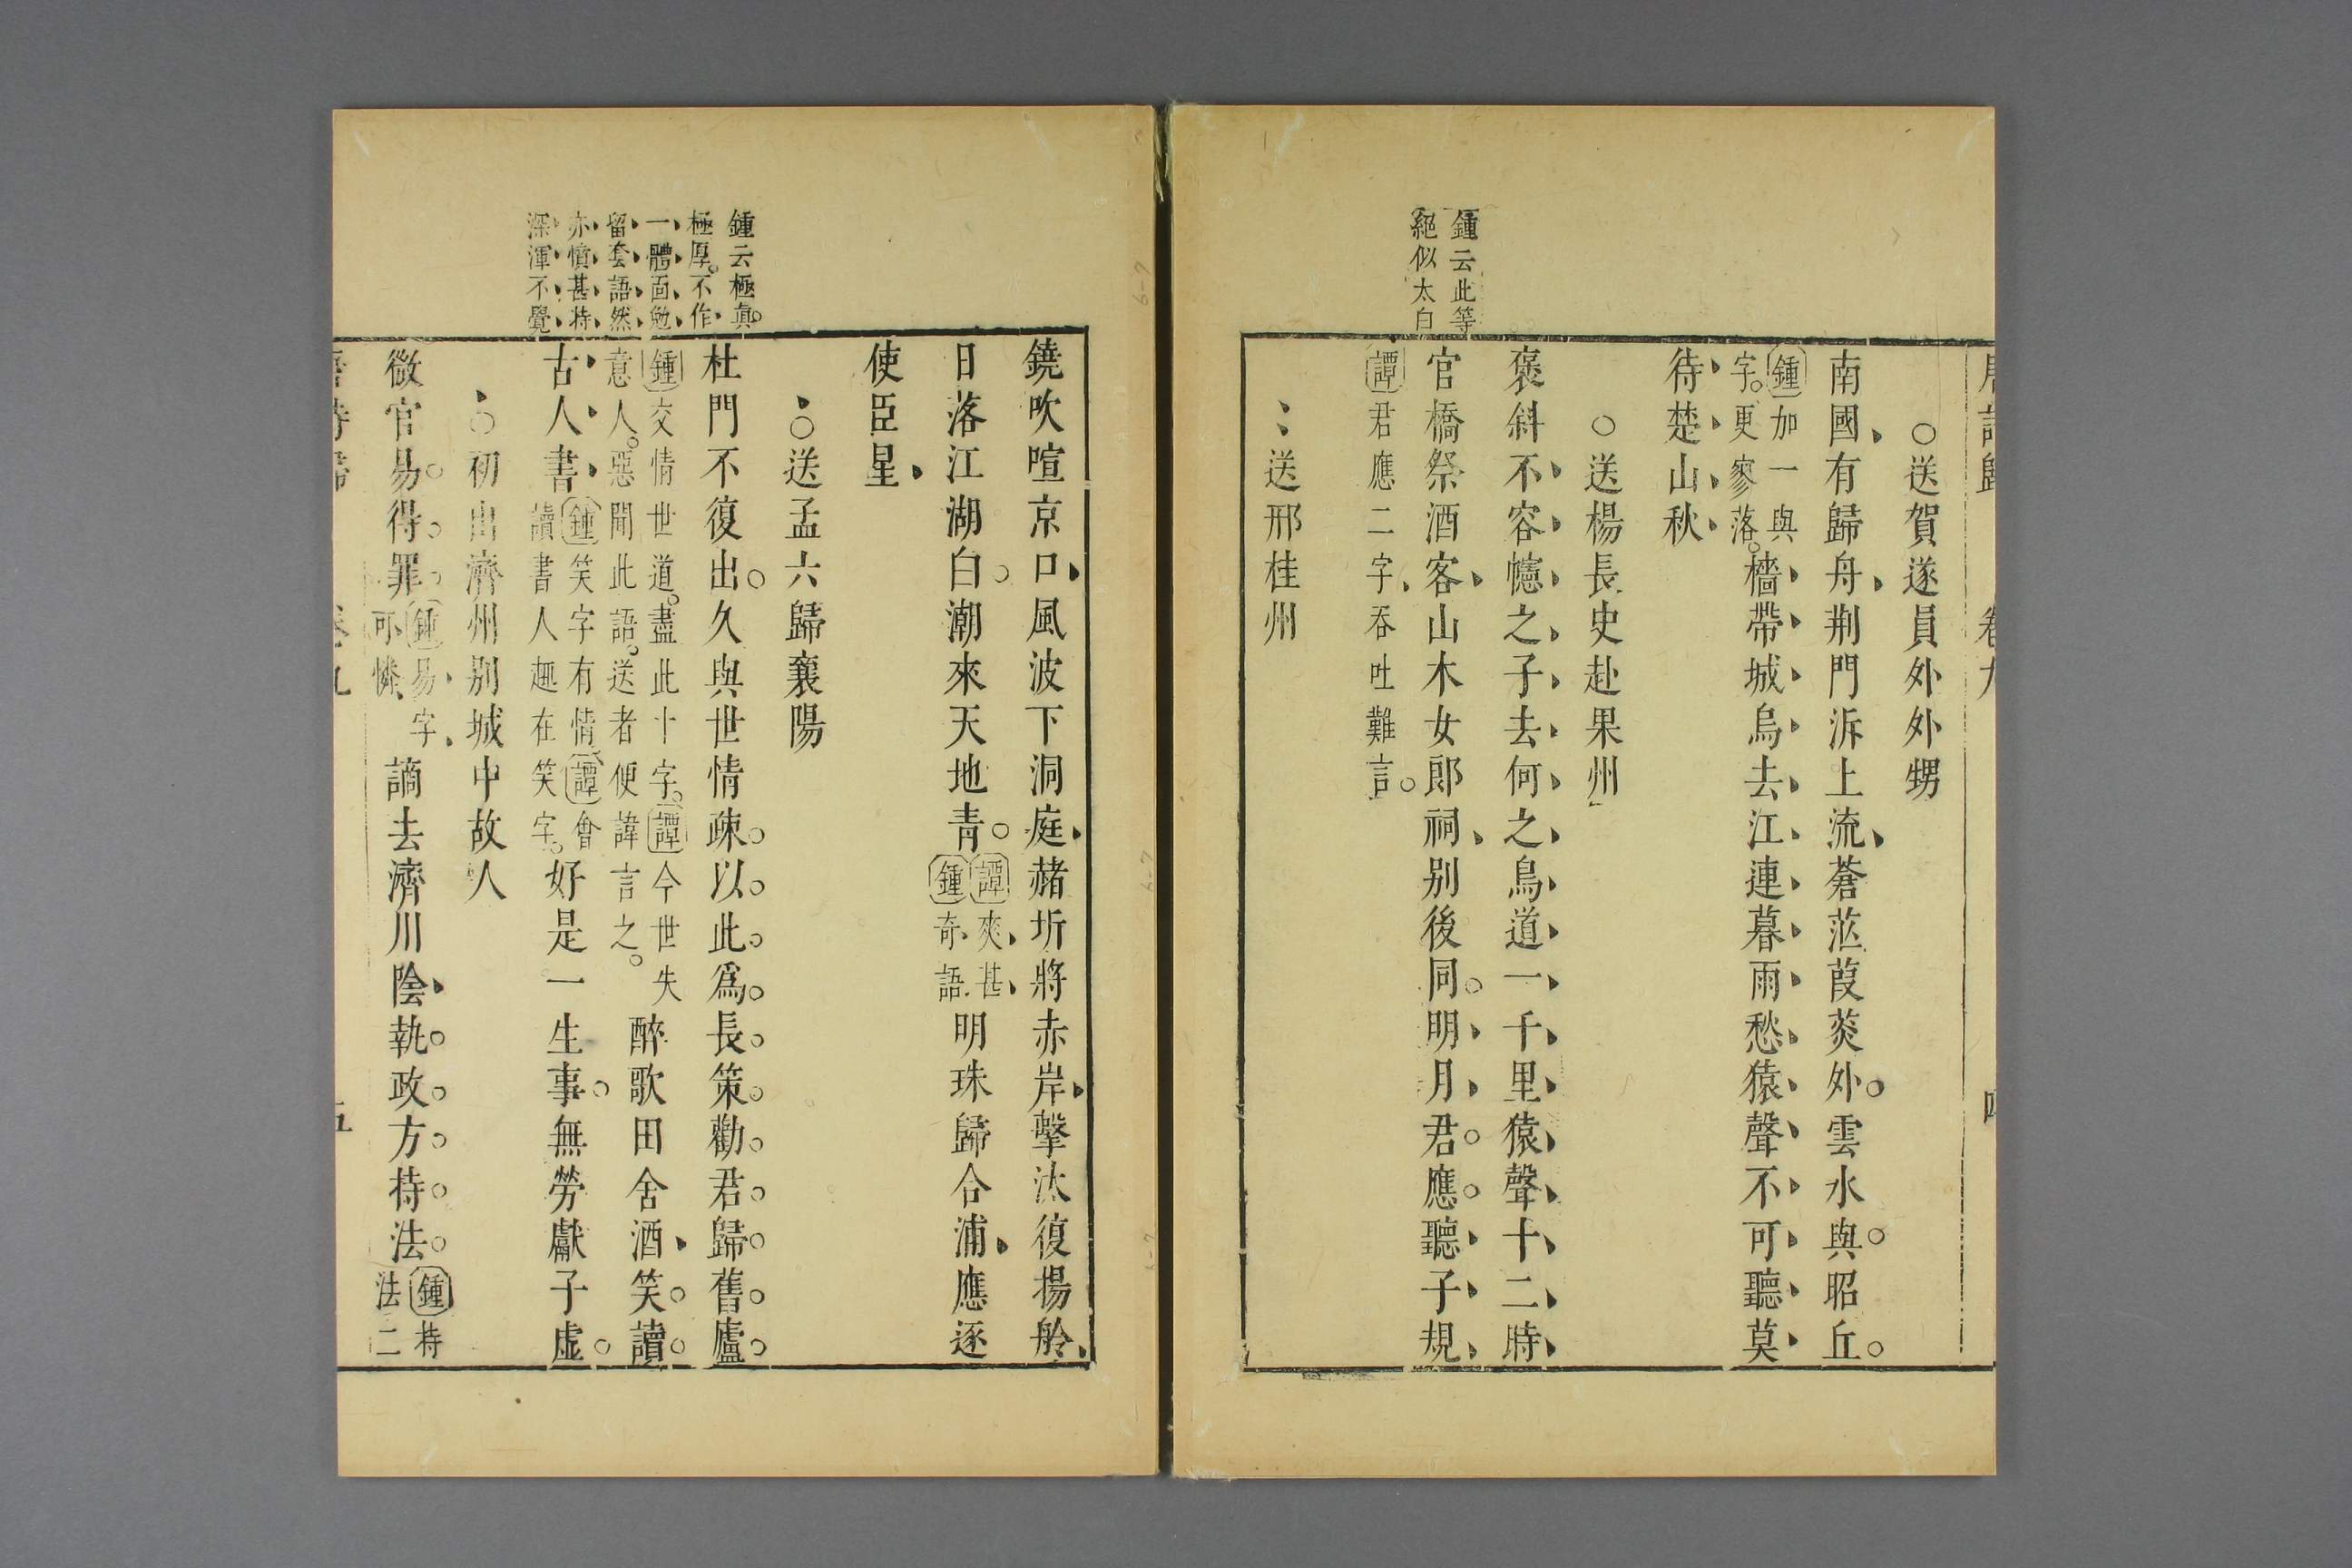 ○送賀遂員外外甥
南國有歸舟荆門泝上流蒼茫葭菼外雲水與昭丘
鍾加一與
字更寥落
檣帶城烏去江連暮雨愁猿聲不可聽莫
待楚山秋
○送楊長史赴果州
褒斜不容幰之子去何之鳥道一千里猿聲十二時
鍾云此等
絕似太白
官橋祭酒客山木女郎祠別後同明月君應聽子規
譚君應二字吞吐難言
送邢桂州
鐃吹喧京口風波下洞庭赭圻將赤岸擊汰復揚舲
日落江湖白潮來天地青
譚爽甚
鍾奇語
明珠歸合浦應逐
使臣星
○送孟六歸襄陽
鍾云極真
極厚不作
一體面勉
留套語然
亦憤甚特
深渾不覺
杜門不復出久與世情疎以此爲長策勸君歸舊廬
鍾交情世道盡此十字譚今世失
意人惡聞此語送者便諱言之
醉歌田舍酒笑讀
古人書
鍾笑字有情譚會
讀書人趣在笑字
好是一生事無勞獻子虛
○初出濟州別城中故人
微官易得罪
鍾易字
可憐
謫去濟川陰執政方持法
鍾持
法二